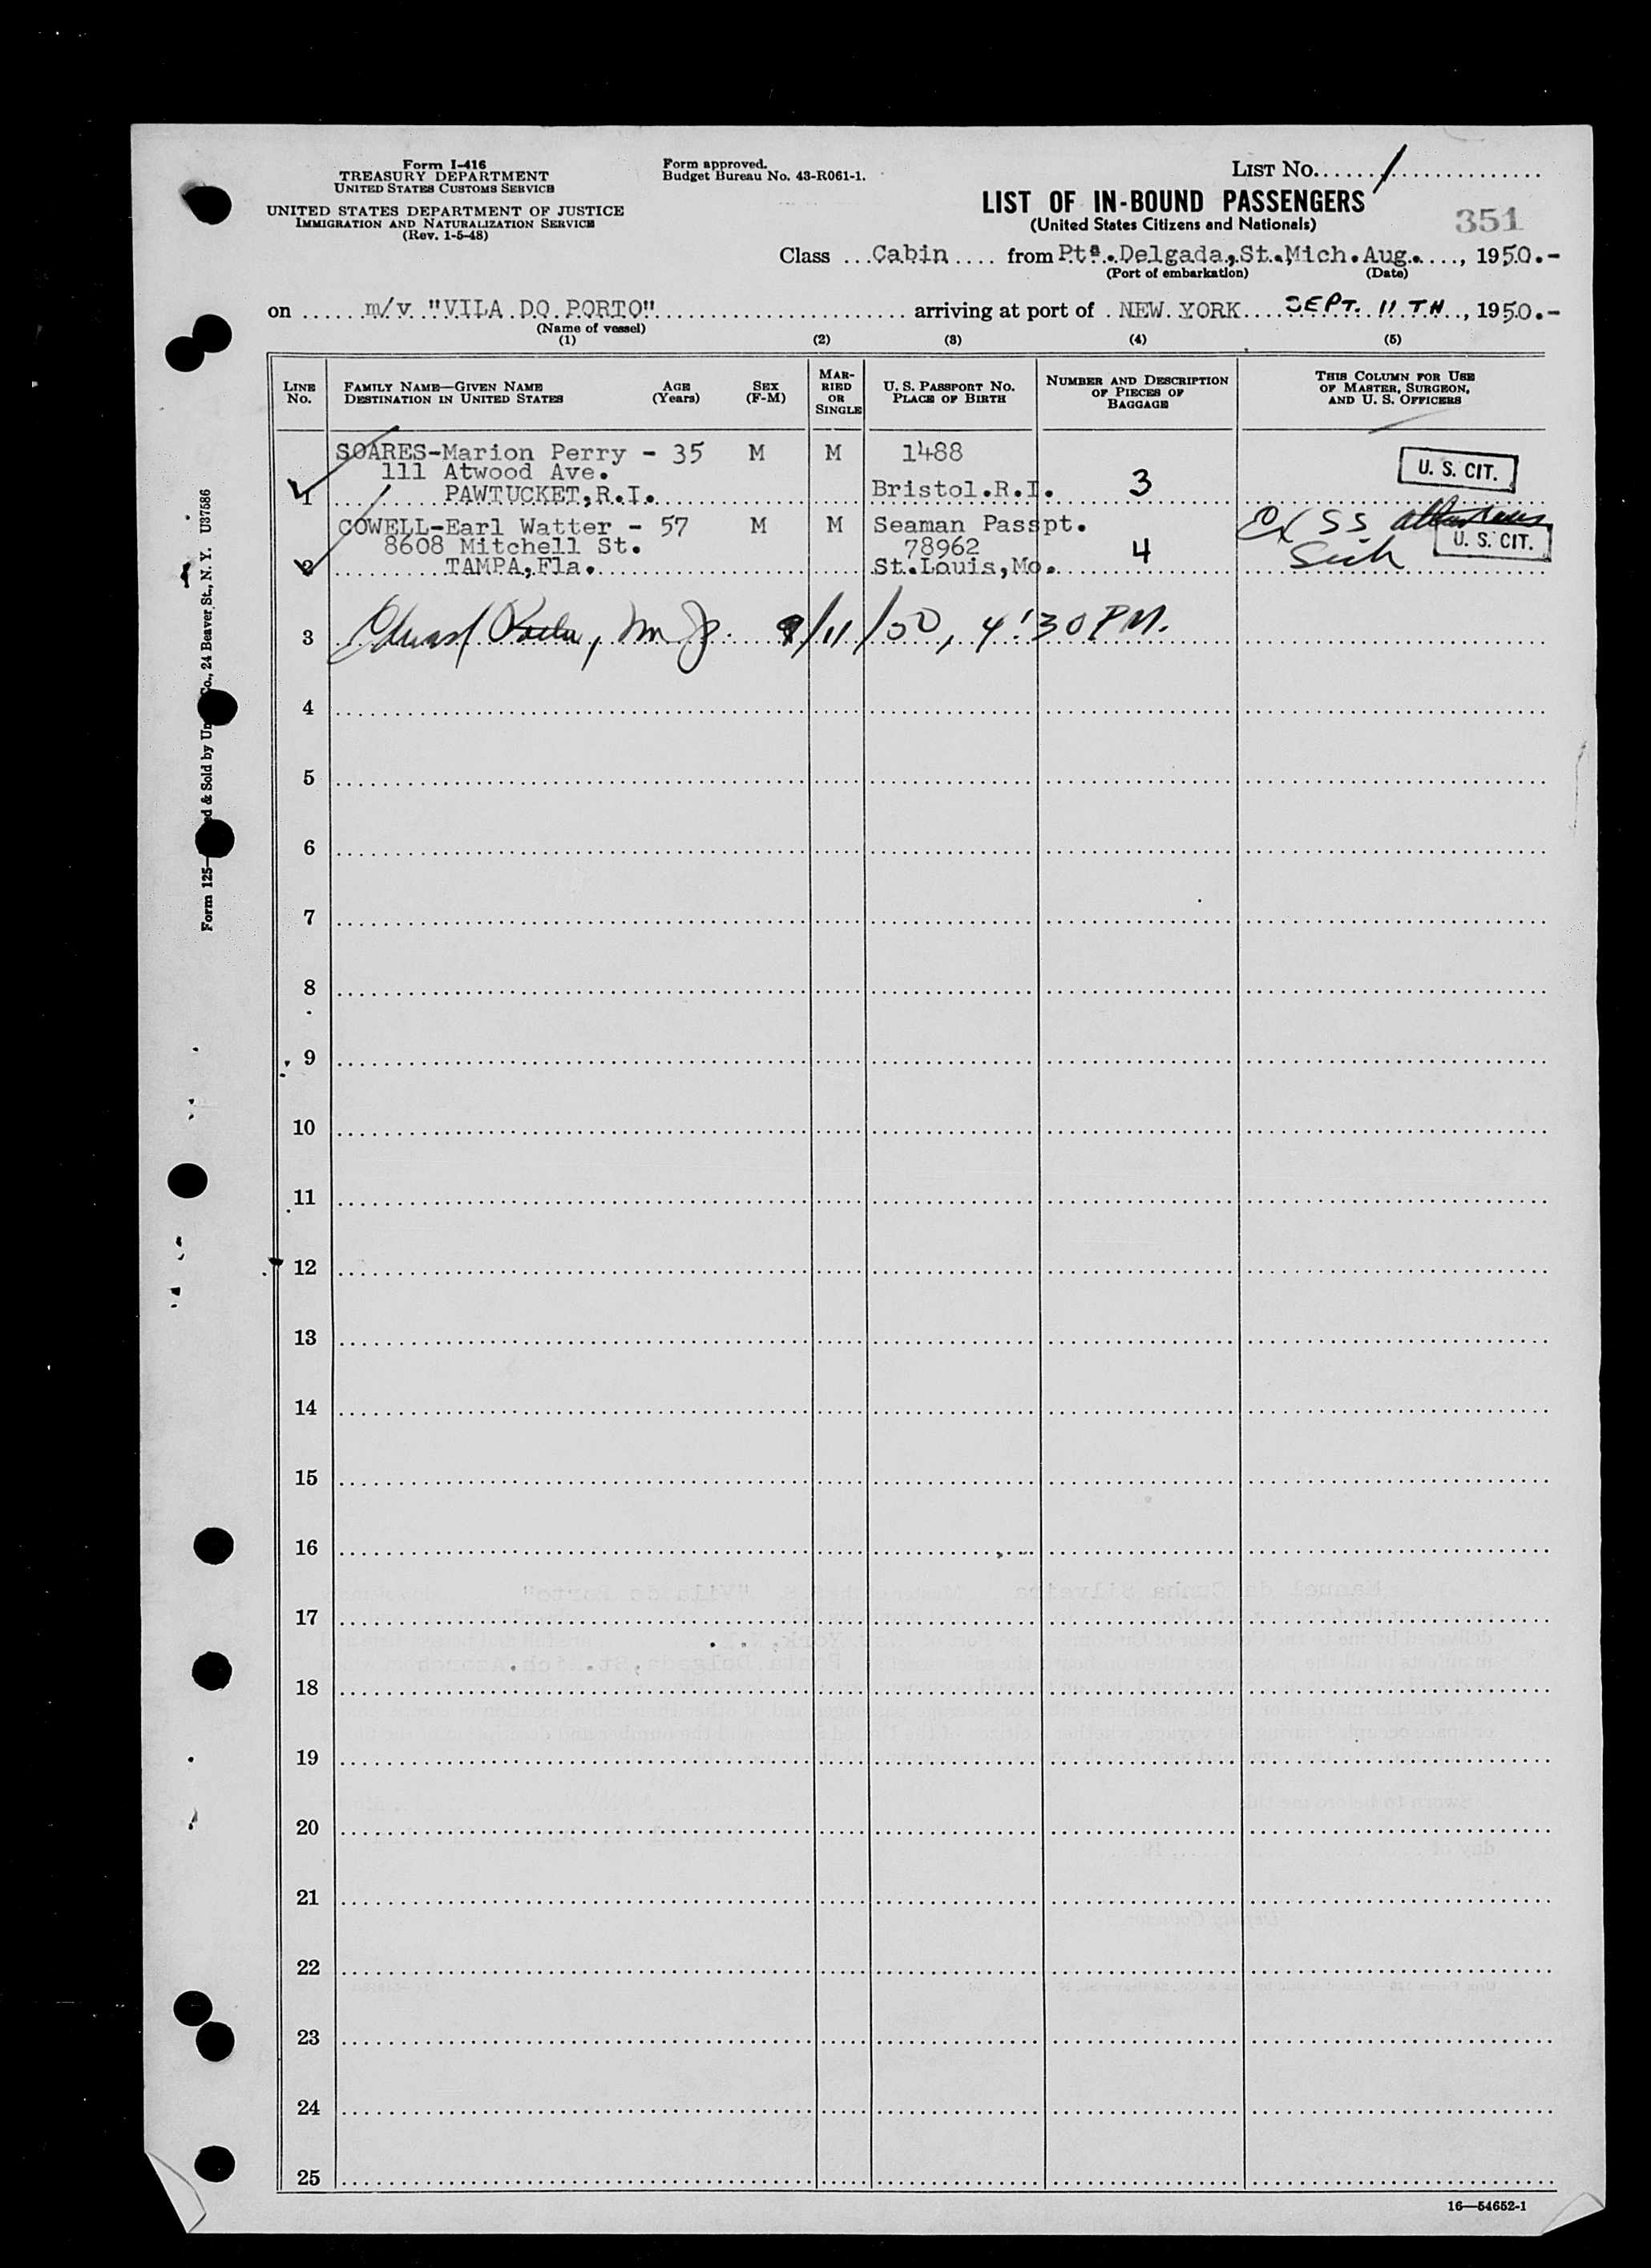 Form I-416
TREASURY DEPARTMENT
UNITED STATES CUSTOMS SERVICE
UNITED STATES DEPARTMENT OF JUSTICE
IMMIGRATION AND NATURALIZATION SERVICE
(Rev. 1-5-48)
Form approved.
Budget Bureau No. 43-R061-1.
LIST No. 1
LIST OF IN-BOUND PASSENGERS
(United States Citizens and Nationals)
351
Class Cabin from Ptª. Delgada, St. Mich. Aug., 1950.-
(Port of embarkation) (Date)
on m/v "VILA DO PORTO" arriving at port of NEW YORK SEPT. 11TH, 1950.-
(Name of vessel)
(1) (2) (3) (4) (5)
LINE No. FAMILY NAME—GIVEN NAME DESTINATION IN UNITED STATES AGE (Years) SEX (F-M) MARRIED OR SINGLE U. S. PASSPORT No. PLACE OF BIRTH NUMBER AND DESCRIPTION OF PIECES OF BAGGAGE THIS COLUMN FOR USE OF MASTER, SURGEON, AND U. S. OFFICERS
SOARES-Marion Perry - 35 M M 1488
111 Atwood Ave. U. S. CIT.
1 PAWTUCKET,R.I. Bristol.R.I. 3
COWELL-Earl Watter - 57 M M Seaman Passpt. SS
8608 Mitchell St. 78962 U. S. CIT.
2 TAMPA,Fla. St.Louis,Mo. 4
3 9/11/50, 4:30 PM.
4
5
6
7
8
9
10
11
12
13
14
15
16
17
18
19
20
21
22
23
24
25
16—54652-1
Form 125— & Sold by Co., 24 Beaver St., N. Y. U37586